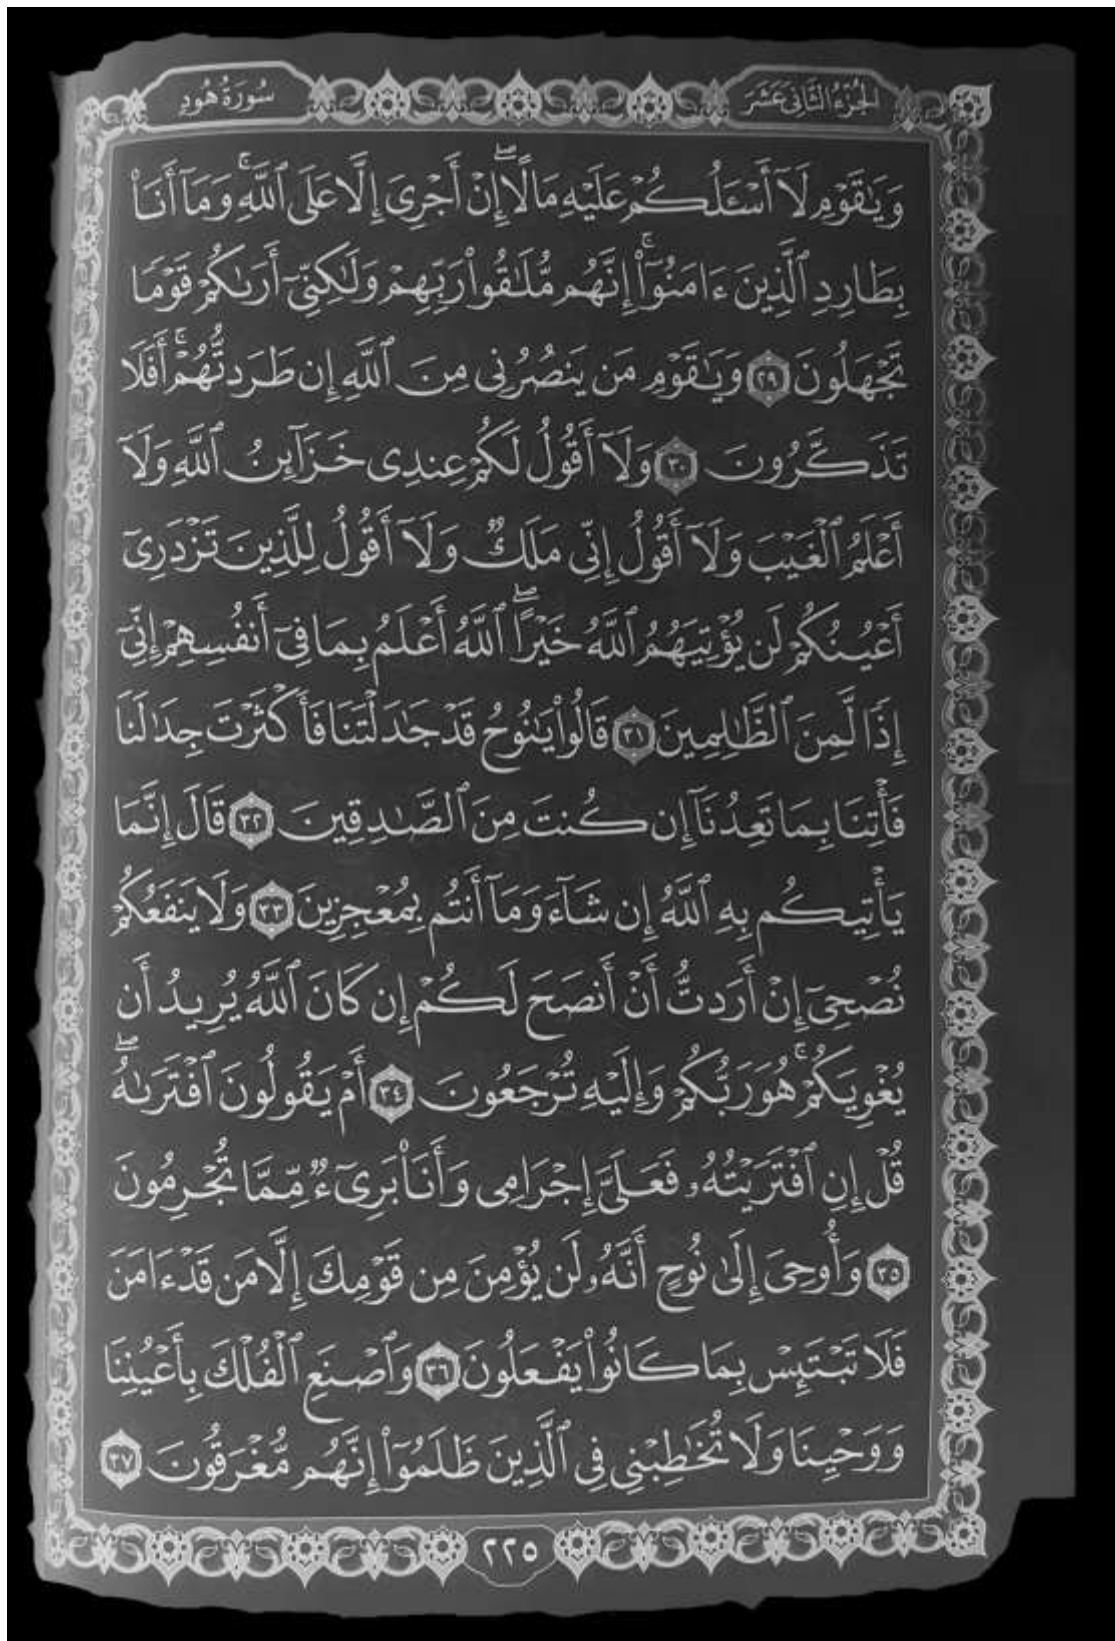 الجزء الثاني عشر
سورة هود
وَيَٰقَوْمِ لَآ أَسْـَٔلُكُمْ عَلَيْهِ مَالًاۖ إِنْ أَجْرِىَ إِلَّا عَلَى ٱللَّهِۚ وَمَآ أَنَا۠
بِطَارِدِ ٱلَّذِينَ ءَامَنُوٓا۟ۚ إِنَّهُم مُّلَٰقُوا۟ رَبِّهِمْ وَلَٰكِنِّىٓ أَرَىٰكُمْ قَوْمًا
تَجْهَلُونَ ٢٩ وَيَٰقَوْمِ مَن يَنصُرُنِى مِنَ ٱللَّهِ إِن طَرَدتُّهُمْۚ أَفَلَا
تَذَكَّرُونَ ٣٠ وَلَآ أَقُولُ لَكُمْ عِندِى خَزَآئِنُ ٱللَّهِ وَلَآ
أَعْلَمُ ٱلْغَيْبَ وَلَآ أَقُولُ إِنِّى مَلَكٌ وَلَآ أَقُولُ لِلَّذِينَ تَزْدَرِىٓ
أَعْيُنُكُمْ لَن يُؤْتِيَهُمُ ٱللَّهُ خَيْرًاۖ ٱللَّهُ أَعْلَمُ بِمَا فِىٓ أَنفُسِهِمْ إِنِّىٓ
إِذًا لَّمِنَ ٱلظَّٰلِمِينَ ٣١ قَالُوا۟ يَٰنُوحُ قَدْ جَٰدَلْتَنَا فَأَكْثَرْتَ جِدَٰلَنَا
فَأْتِنَا بِمَا تَعِدُنَآ إِن كُنتَ مِنَ ٱلصَّٰدِقِينَ ٣٢ قَالَ إِنَّمَا
يَأْتِيكُم بِهِ ٱللَّهُ إِن شَآءَ وَمَآ أَنتُم بِمُعْجِزِينَ ٣٣ وَلَا يَنفَعُكُمْ
نُصْحِىٓ إِنْ أَرَدتُّ أَنْ أَنصَحَ لَكُمْ إِن كَانَ ٱللَّهُ يُرِيدُ أَن
يُغْوِيَكُمْۚ هُوَ رَبُّكُمْ وَإِلَيْهِ تُرْجَعُونَ ٣٤ أَمْ يَقُولُونَ ٱفْتَرَىٰهُۖ
قُلْ إِنِ ٱفْتَرَيْتُهُۥ فَعَلَىَّ إِجْرَامِى وَأَنَا۠ بَرِىٓءٌ مِّمَّا تُجْرِمُونَ
٣٥ وَأُوحِىَ إِلَىٰ نُوحٍ أَنَّهُۥ لَن يُؤْمِنَ مِن قَوْمِكَ إِلَّا مَن قَدْ ءَامَنَ
فَلَا تَبْتَئِسْ بِمَا كَانُوا۟ يَفْعَلُونَ ٣٦ وَٱصْنَعِ ٱلْفُلْكَ بِأَعْيُنِنَا
وَوَحْيِنَا وَلَا تُخَٰطِبْنِى فِى ٱلَّذِينَ ظَلَمُوٓا۟ إِنَّهُم مُّغْرَقُونَ ٣٧
٢٢٥